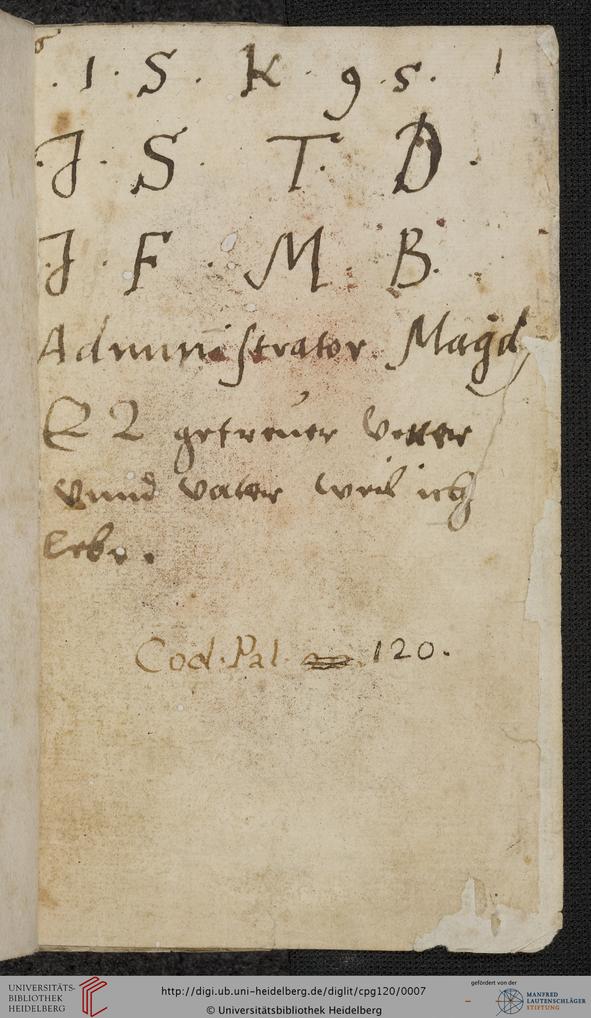 . 1 . S . K . 9 . 5 .
J . S . T . D .
J . F . M B.
Administrator Magd
E L getreuer Vetter
Vnnd Vater weil ich
lebe.
Cod. Pal. 120.
UNIVERSITÄTS-
BIBLIOTHEK
HEIDELBERG
http://digi.ub.uni-heidelberg.de/diglit/cpg120/0007
© Universitätsbibliothek Heidelberg
gefördert von der
MANFRED
LAUTENSCHLÄGER
STIFTUNG